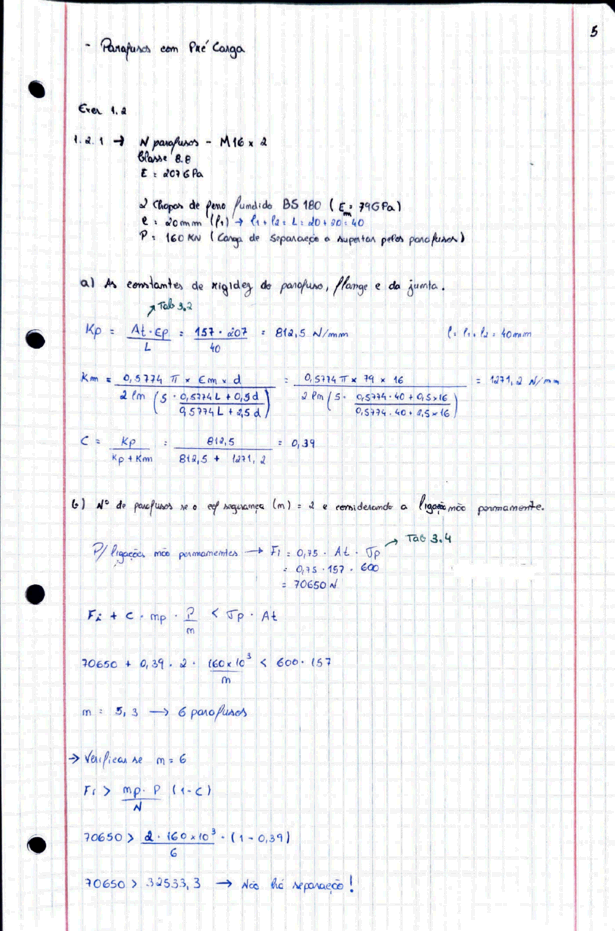 5
- Parafusos com Pré Carga
Exer 1.2
1.2.1 → N parafusos - M16 x 2
Classe 8.8
E = 207 GPa
2 Chapas de ferro fundido BS 180 (Em = 79GPa)
e = 20mm (l1) → l1 + l2 = L = 20 + 20 = 40
P = 160 KN (Carga de separação a suportar pelos parafusos)
a) As constantes de rigidez do parafuso, flange e da junta.
↗ Tab 3.2
Kp = At · Ep / L = 157 · 207 / 40 = 812,5 N/mm l = l1 + l2 = 40mm
Km = 0,5774 π x Em x d / 2 ln (5 · 0,5774 L + 0,5 d / 0,5774 L + 2,5 d) = 0,5774 π x 79 x 16 / 2 ln (5 · 0,5774 · 40 + 0,5 x 16 / 0,5774 · 40 + 2,5 x 16) = 1271,2 N/mm
C = Kp / Kp + Km = 812,5 / 812,5 + 1271,2 = 0,39
b) Nº de parafusos se o coef segurança (m) = 2 e considerando a ligação não permamente.
P/ ligações não permamentes → Fi = 0,75 · At · σp → Tab 3.4
= 0,75 · 157 · 600
= 70650 N
Fi + C · mp · P / m < σp · At
70650 + 0,39 · 2 · 160 x 10³ / m < 600 · 157
m = 5,3 → 6 parafusos
→ Verificar se m = 6
Fi > mp · P / N (1 - C)
70650 > 2 · 160 x 10³ / 6 · (1 - 0,39)
70650 > 32533,3 → Não há separação!